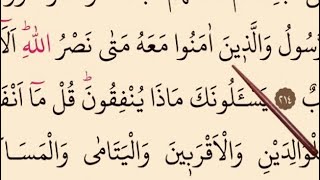 رَسُولُ وَالَّذ۪ينَ اٰمَنُوا مَعَهُ مَتٰى نَصْرُ اللّٰهِۜ اَلَٓا
﴿٢١٤﴾ يَسْـَٔلُونَكَ مَاذَا يُنْفِقُونَۜ قُلْ مَٓا اَنْفَ
وَالِدَيْنِ وَالْاَقْرَب۪ينَ وَالْيَتَامٰى وَالْمَسَا